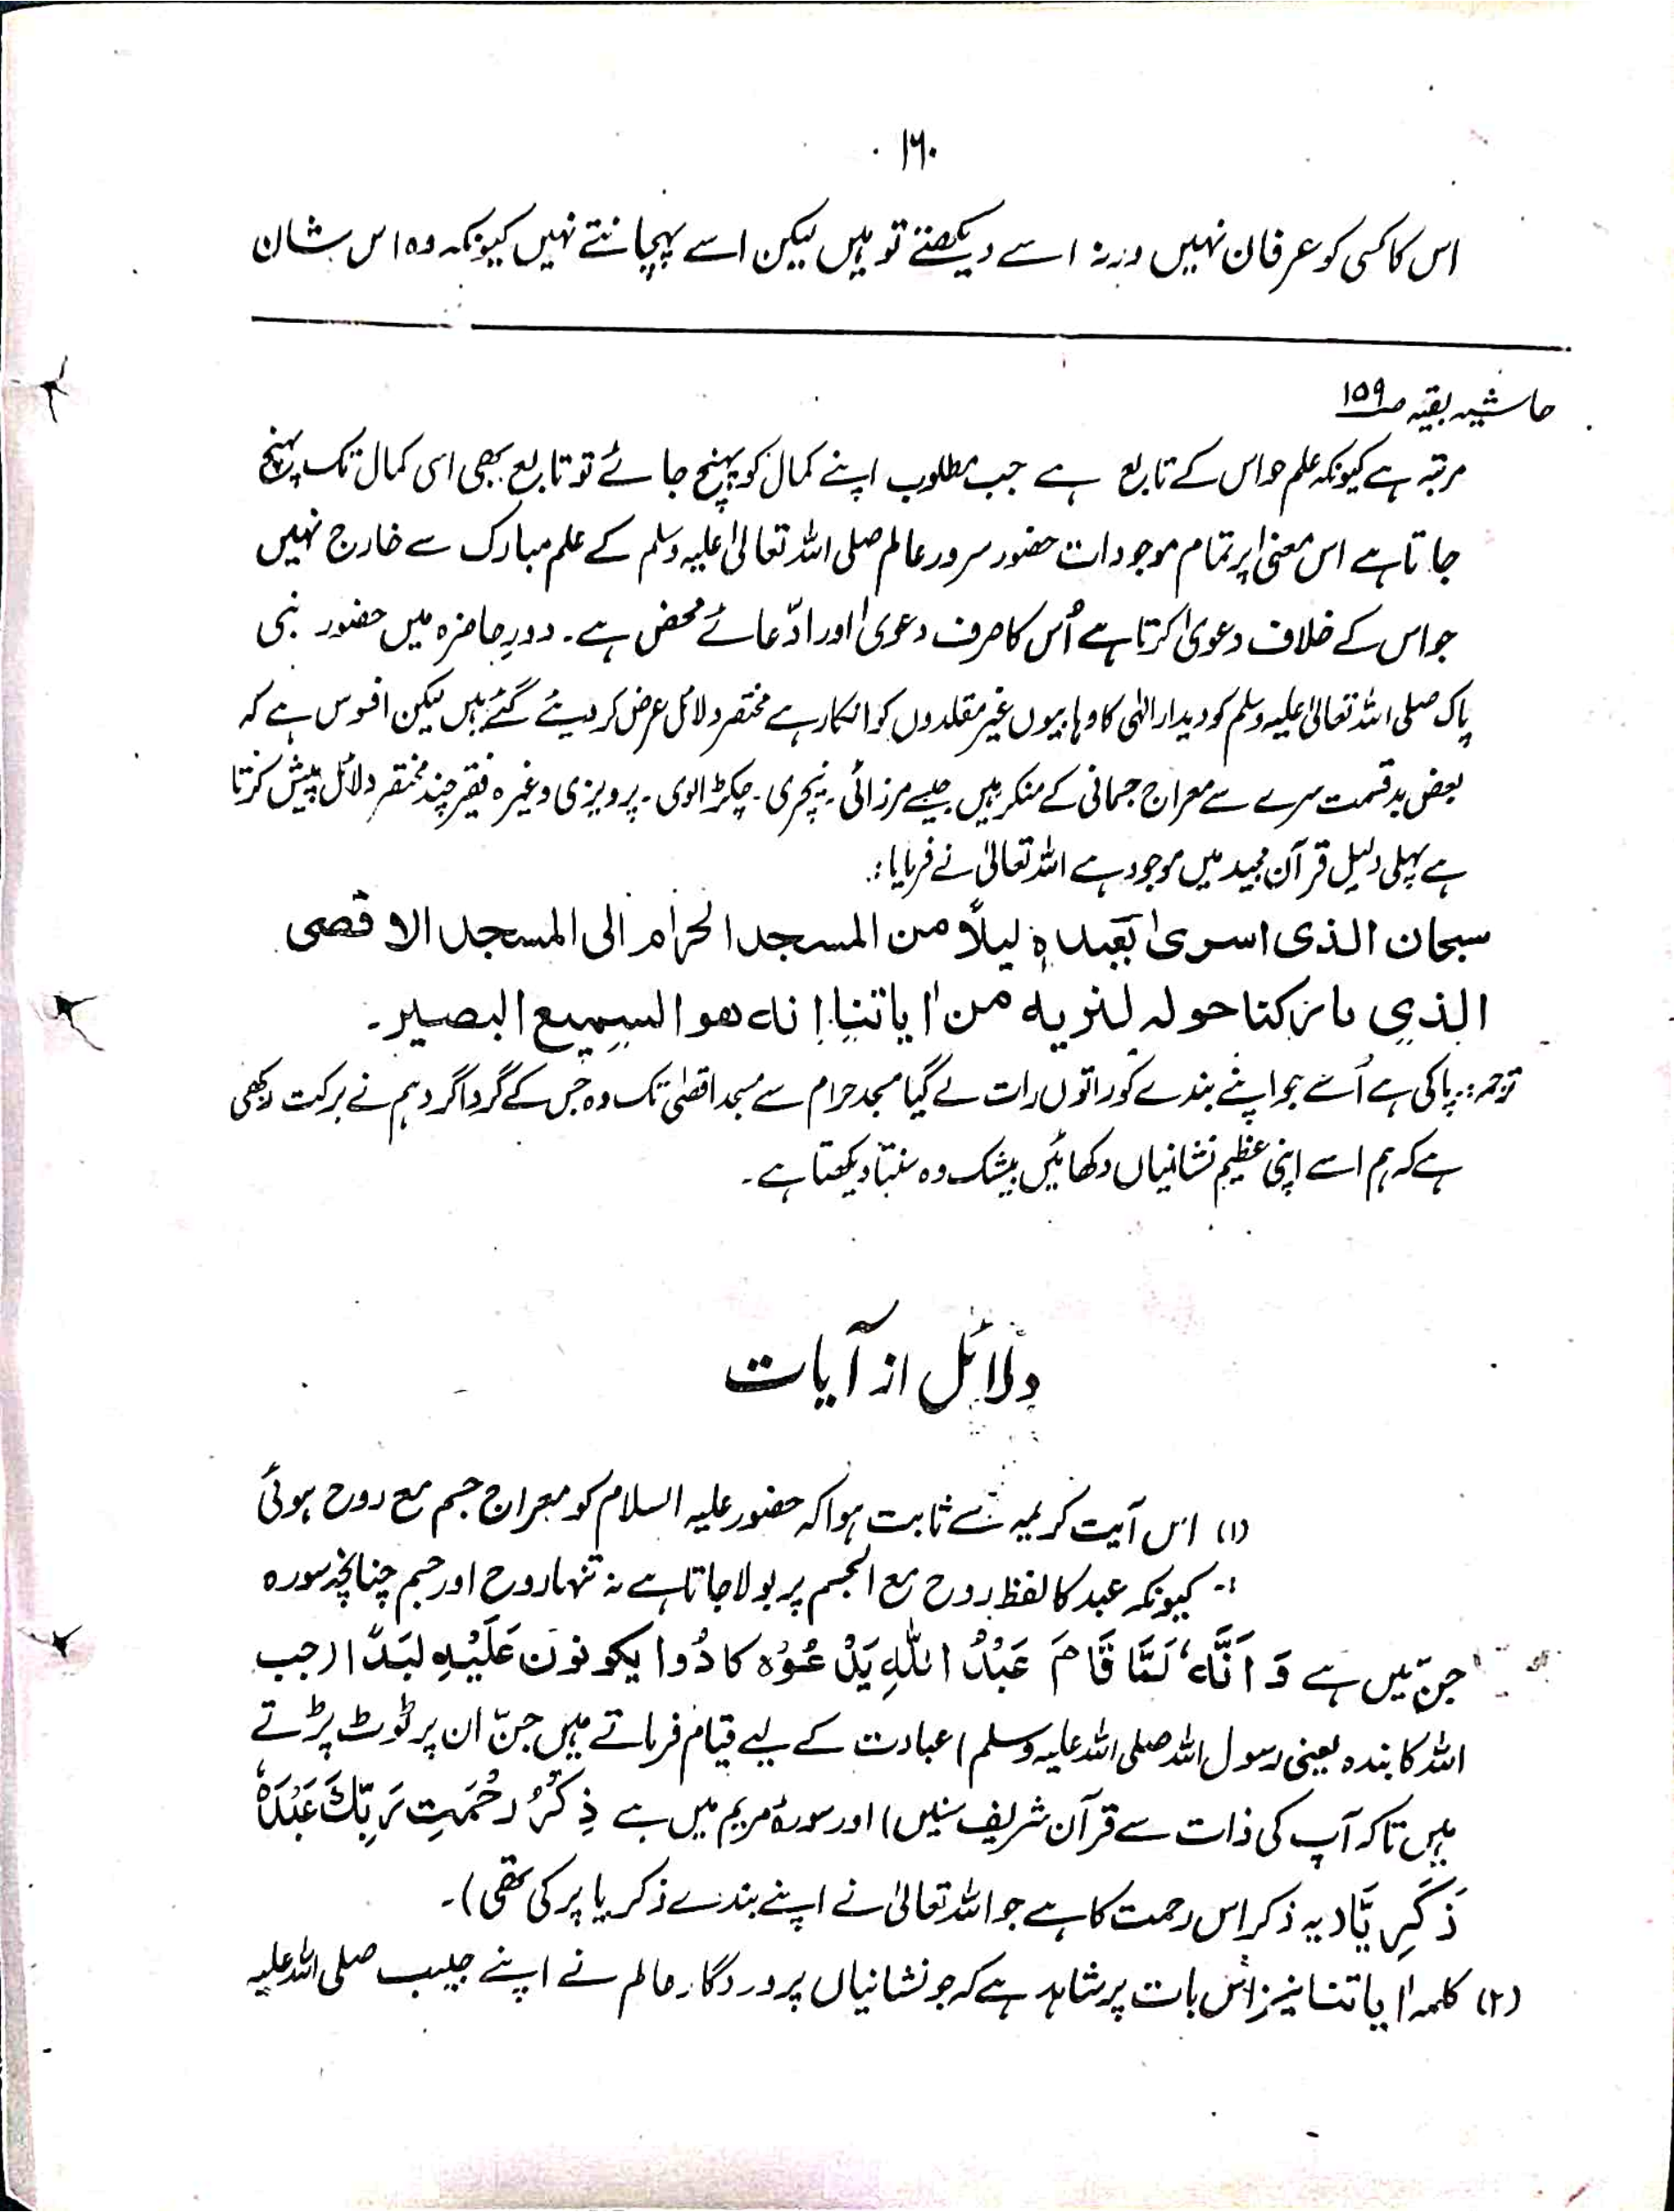 ۱۶۰
اس کا کسی کو عرفان نہیں ورنہ اسے دیکھتے تو ہیں لیکن اسے پہچانتے نہیں کیونکہ وہ اس شان
حاشیہ بقیہ صـ ۱۵۹
مرتبہ ہے کیونکہ علم حواس کے تابع ہے جب مطلوب اپنے کمال کو پہنچ جائے تو تابع بھی اسی کمال تک پہنچ
جاتا ہے اس معنیٰ پر تمام موجودات حضور سرور عالم صلی اللہ تعالیٰ علیہ وسلم کے علم مبارک سے خارج نہیں
جو اس کے خلاف دعویٰ کرتا ہے اُس کا صرف دعویٰ اور ادّعائے محض ہے۔ دورِ حاضرہ میں حضور نبی
پاک صلی اللہ تعالیٰ علیہ وسلم کو دیدار الٰہی کا وہابیوں غیر مقلدوں کو انکار ہے مختصر دلائل عرض کر دیئے گئے ہیں لیکن افسوس ہے کہ
بعض بدقسمت سرے سے معراج جسمانی کے منکر ہیں جیسے مرزائی۔ نیچری۔ چکڑالوی۔ پرویزی وغیرہ فقیر چند مختصر دلائل پیش کرتا
ہے پہلی دلیل قرآن مجید میں موجود ہے اللہ تعالیٰ نے فرمایا:
سبحان الذی اسریٰ بعبدہٖ لیلاً من المسجد الحرام الی المسجد الاقصی
الذی بارکنا حولہ لنریہ من اٰیاتنا انہ ھو السمیع البصیر۔
ترجمہ:۔ پاکی ہے اُسے جو اپنے بندے کو راتوں رات لے گیا مسجد حرام سے مسجد اقصیٰ تک وہ جس کے گردا گرد ہم نے برکت رکھی
ہے کہ ہم اسے اپنی عظیم نشانیاں دکھائیں بیشک وہ سنتا دیکھتا ہے۔
دلائل از آیات
(۱) اس آیت کریمہ سے ثابت ہوا کہ حضور علیہ السلام کو معراج جسم مع روح ہوئی
کیونکہ عبد کا لفظ روح مع الجسم پر بولا جاتا ہے نہ تنہا روح اور جسم چنانچہ سورہ
جنّ میں ہے وَ اَنَّہٗ لَمَّا قَامَ عَبْدُ اللّٰہِ یَدْعُوْہ کَادُوا یکونون عَلَیْہِ لِبَدًا (جب
اللہ کا بندہ یعنی رسول اللہ صلی اللہ علیہ وسلم) عبادت کے لیے قیام فرماتے ہیں جنّ ان پر ٹوٹ پڑتے
ہیں تاکہ آپ کی ذات سے قرآن شریف سنیں) اور سورۂ مریم میں ہے ذِکْرُ رحْمَتِ رَبِّکَ عَبْدَہٗ
زَکَرِیَّا (یہ ذکر اس رحمت کا ہے جو اللہ تعالیٰ نے اپنے بندے زکریا پر کی تھی)۔
(۲) کلمہ اٰیاتنا نیز اس بات پر شاہد ہے کہ جو نشانیاں پروردگار عالم نے اپنے حبیب صلی اللہ علیہ